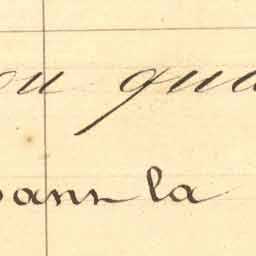 ou qua
dans la